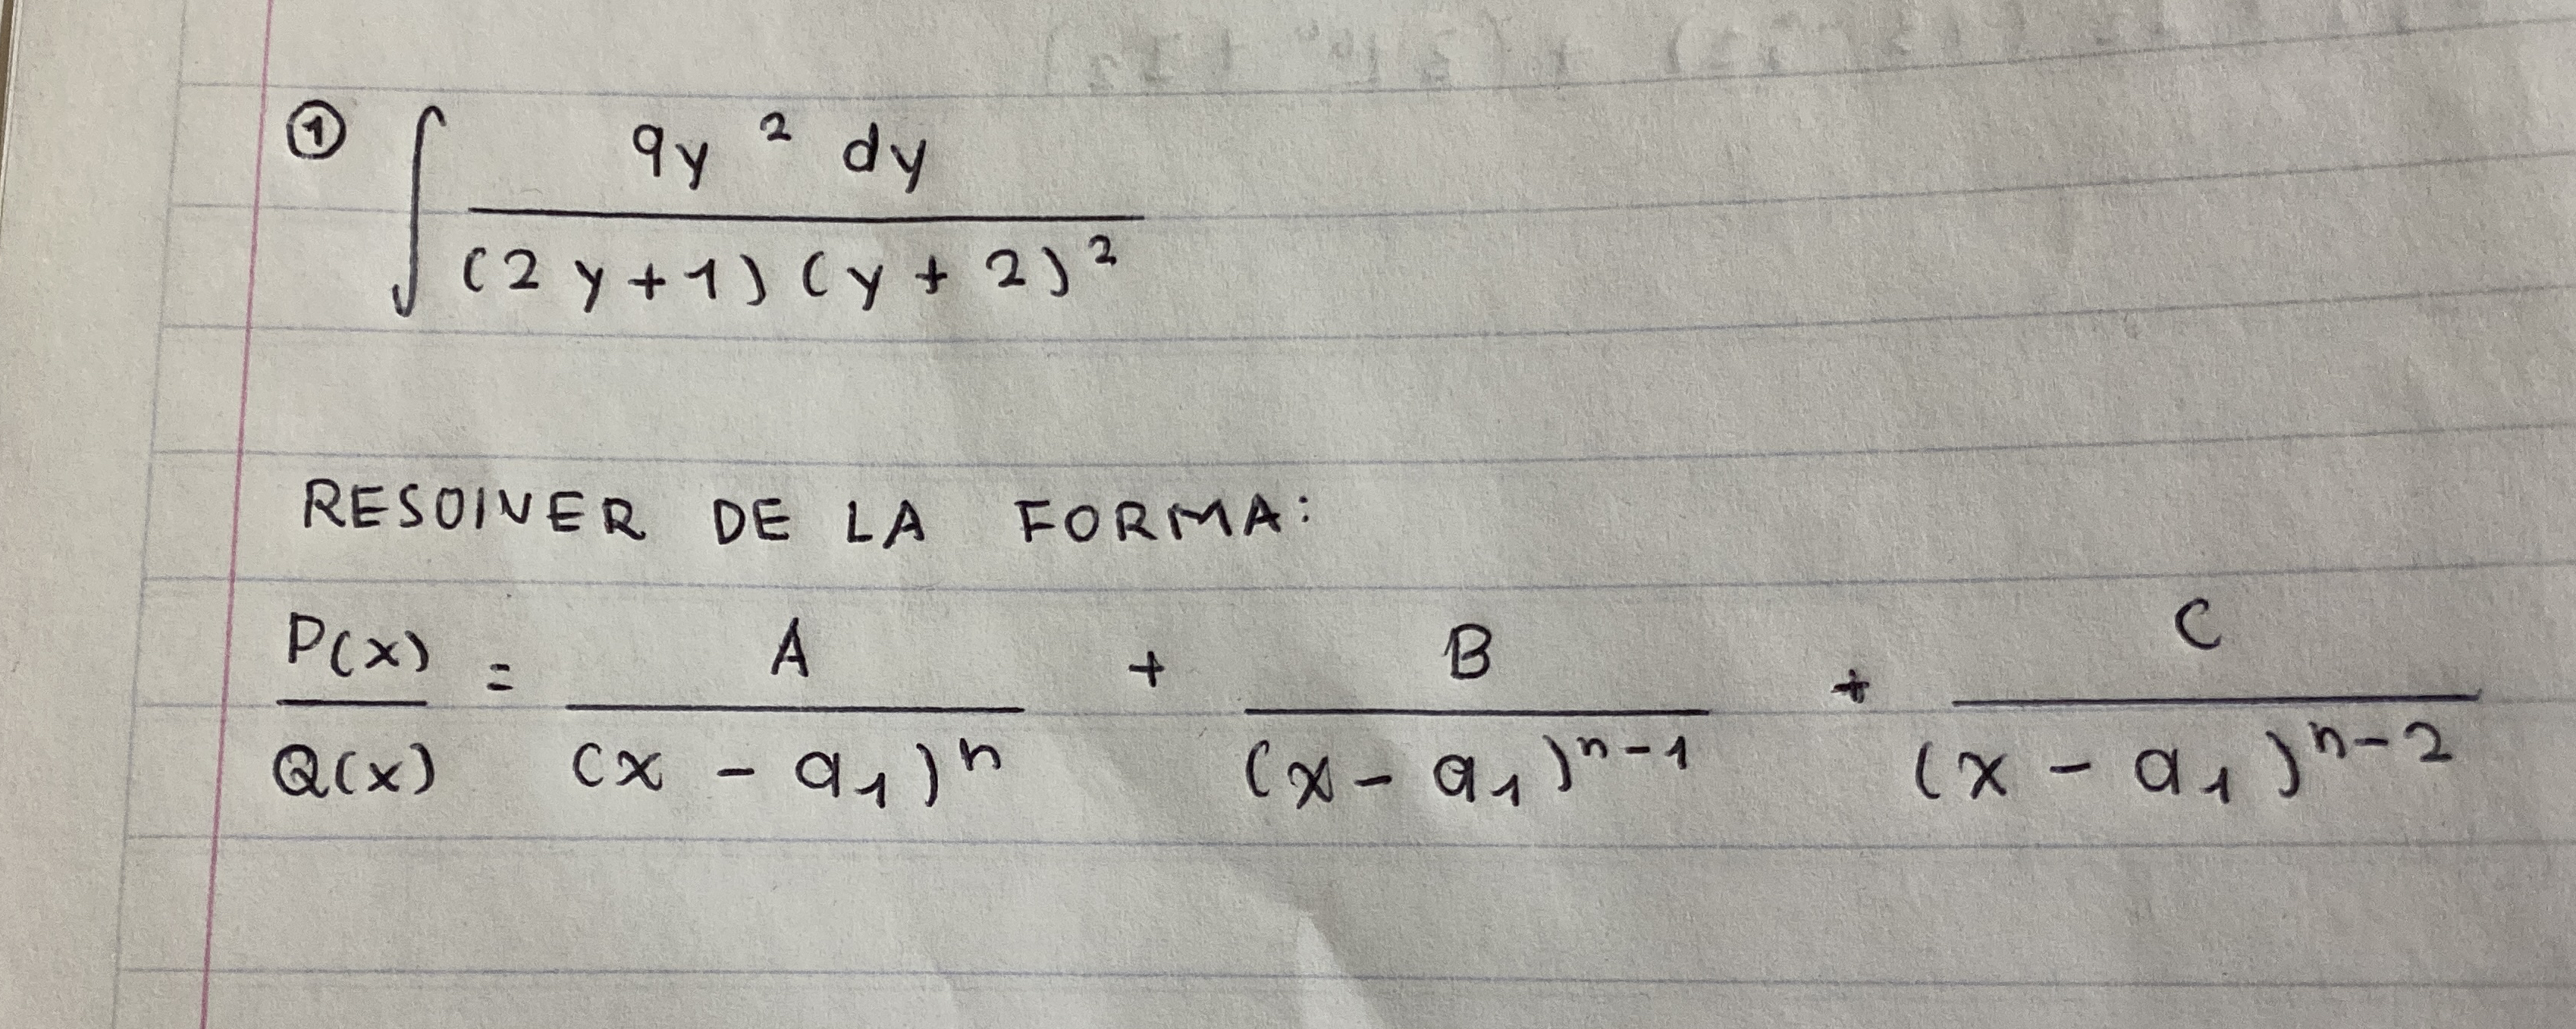 ① ∫ 9y² dy / (2y+1)(y+2)²
RESOLVER DE LA FORMA:
P(x)/Q(x) = A/(x - a₁)ⁿ + B/(x - a₁)ⁿ⁻¹ + C/(x - a₁)ⁿ⁻²